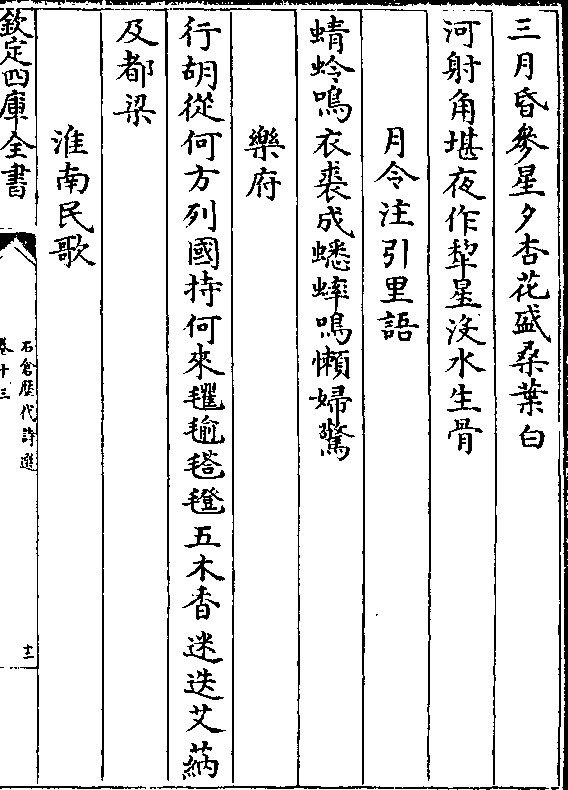 三月昏參星夕杏花盛桑葉白
河射角堪夜作犂星沒水生骨
月令注引里語
蜻蛉鳴衣裘成蟋蟀鳴懶婦驚
樂府
行胡從何方列國持何來氍毹㲮㲪五木香迷迭艾蒳
及都梁
淮南民歌
欽定四庫全書
石倉歷代詩選
卷十三
十二